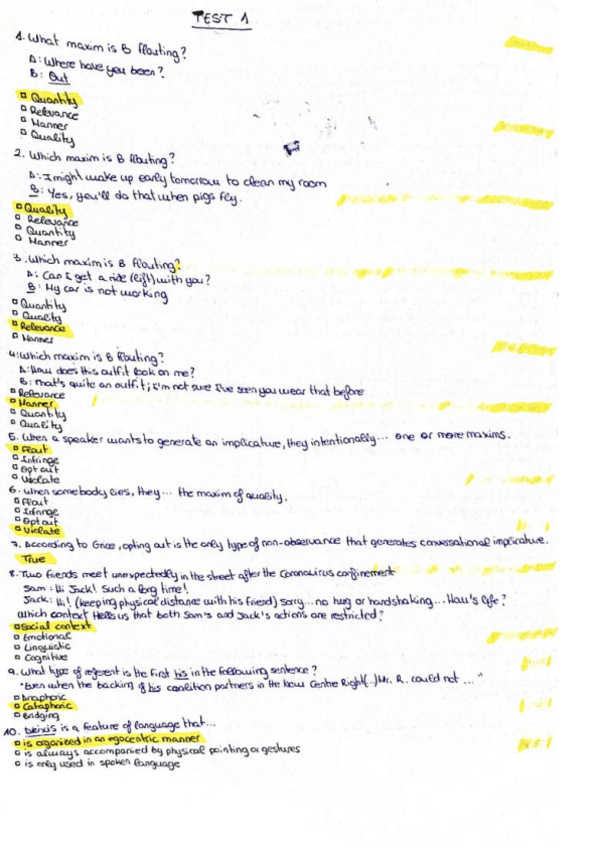 TEST 1
1. What maxim is B flouting?
A: Where have you been?
B: Out
Quantity
Relevance
Manner
Quality
2. Which maxim is B flouting?
A: I might wake up early tomorrow to clean my room
B: Yes, you'll do that when pigs fly.
Quality
Relevance
Quantity
Manner
3. Which maxim is B flouting?
A: Can I get a ride (lift) with you?
B: My car is not working
Quantity
Quality
Relevance
Manner
4. Which maxim is B flouting?
A: How does this outfit look on me?
B: That's quite an outfit; I'm not sure I've seen you wear that before
Relevance
Manner
Quantity
Quality
5. When a speaker wants to generate an implicature, they intentionally... one or more maxims.
Flout
Infringe
Opt out
Violate
6. When somebody lies, they... the maxim of quality.
Flout
Infringe
Opt out
Violate
7. According to Grice, opting out is the only type of non-observance that generates conversational implicature.
True
8. Two friends meet unexpectedly in the street after the Coronavirus confinement
Sam: Hi Jack! Such a long time!
Jack: Hi! (keeping physical distance with his friend) sorry... no hug or handshaking... How's life?
Which context tells us that both Sam's and Jack's actions are restricted?
Social context
Emotional
Linguistic
Cognitive
9. What type of referent is the first his in the following sentence?
"Even when the backing of his coalition partners in the New Centre Right(..) Mr. R. could not ..."
Anaphoric
Cataphoric
Bridging
10. Deixis is a feature of language that...
is organized in an egocentric manner
is always accompanied by physical pointing or gestures
is only used in spoken language